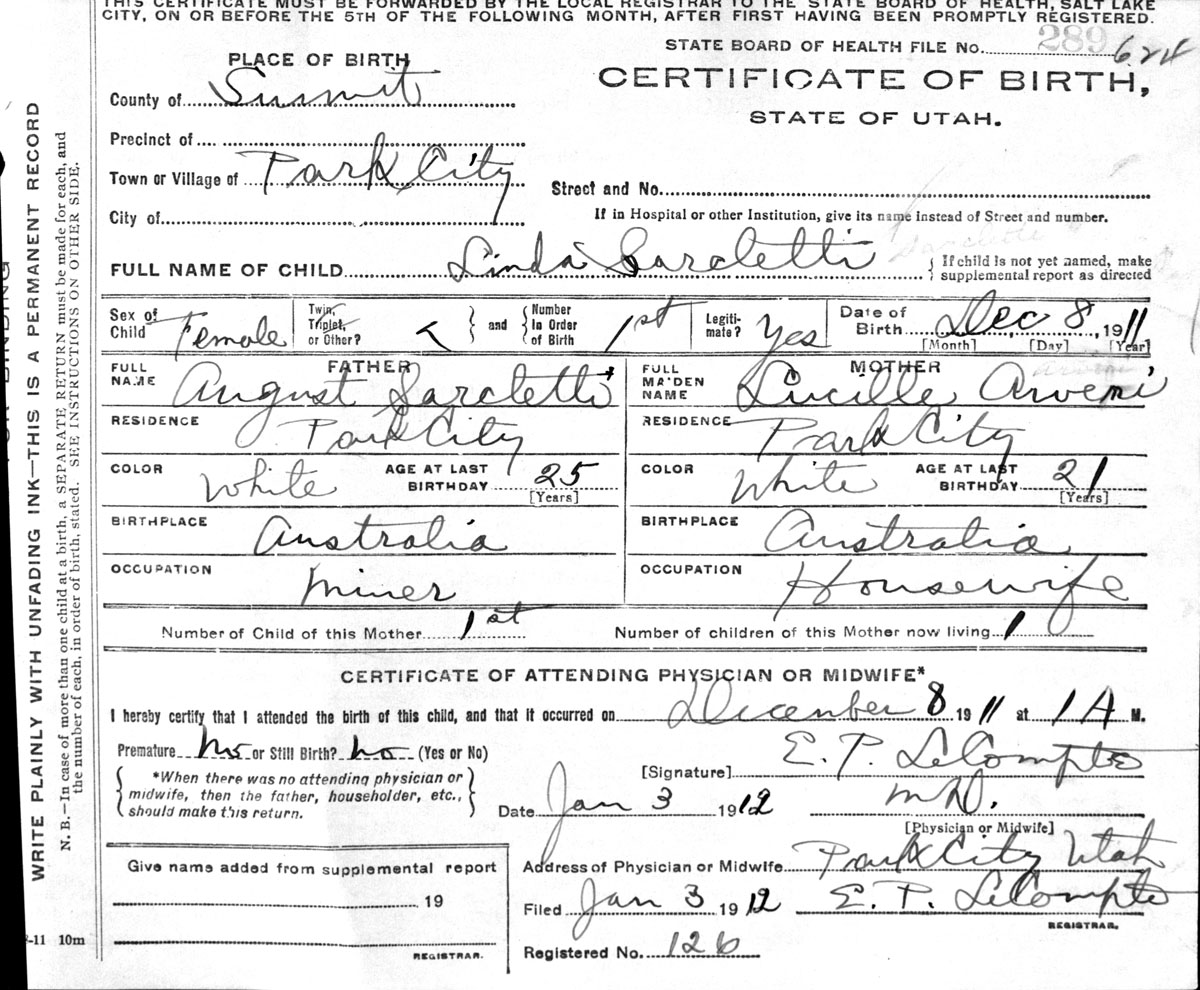 THIS CERTIFICATE MUST BE FORWARDED BY THE LOCAL REGISTRAR TO THE STATE BOARD OF HEALTH, SALT LAKE
CITY, ON OR BEFORE THE 5TH OF THE FOLLOWING MONTH, AFTER FIRST HAVING BEEN PROMPTLY REGISTERED.
STATE BOARD OF HEALTH FILE NO. 289 624
PLACE OF BIRTH
CERTIFICATE OF BIRTH,
County of Summit
STATE OF UTAH.
Precinct of
Town or Village of Park City
Street and No.
City of
If in Hospital or other Institution, give its name instead of Street and number.
FULL NAME OF CHILD Linda Sarcletti
{ If child is not yet named, make supplemental report as directed
Sex of Child Female
Twin, Triplet, or Other?
and
Number In Order of Birth 1st
Legiti-mate? Yes
Date of Birth Dec 8, 1911
[Month] [Day] [Year]
FATHER
FULL NAME August Sarcletti
MOTHER
FULL MAIDEN NAME Lucille Arveri
RESIDENCE Park City
RESIDENCE Park City
COLOR White AGE AT LAST BIRTHDAY 25 [Years]
COLOR White AGE AT LAST BIRTHDAY 21 [Years]
BIRTHPLACE Australia
BIRTHPLACE Australia
OCCUPATION Miner
OCCUPATION Housewife
Number of Child of this Mother 1st
Number of children of this Mother now living 1
CERTIFICATE OF ATTENDING PHYSICIAN OR MIDWIFE*
I hereby certify that I attended the birth of this child, and that it occurred on December 8 1911 at 1 A M.
Premature No or Still Birth? no (Yes or No)
*When there was no attending physician or
midwife, then the father, householder, etc.,
should make this return.
[Signature] E. P. LeCompte
Date Jan 3 1912 M.D.
[Physician or Midwife]
Address of Physician or Midwife Park City Utah
Filed Jan 3 1912 E. P. LeCompte
REGISTRAR.
Registered No. 126
Give name added from supplemental report
19
REGISTRAR.
-11 10m
WRITE PLAINLY WITH UNFADING INK—THIS IS A PERMANENT RECORD
N. B.—In case of more than one child at a birth, a SEPARATE RETURN must be made for each, and
the number of each, in order of birth, stated. SEE INSTRUCTIONS ON OTHER SIDE.